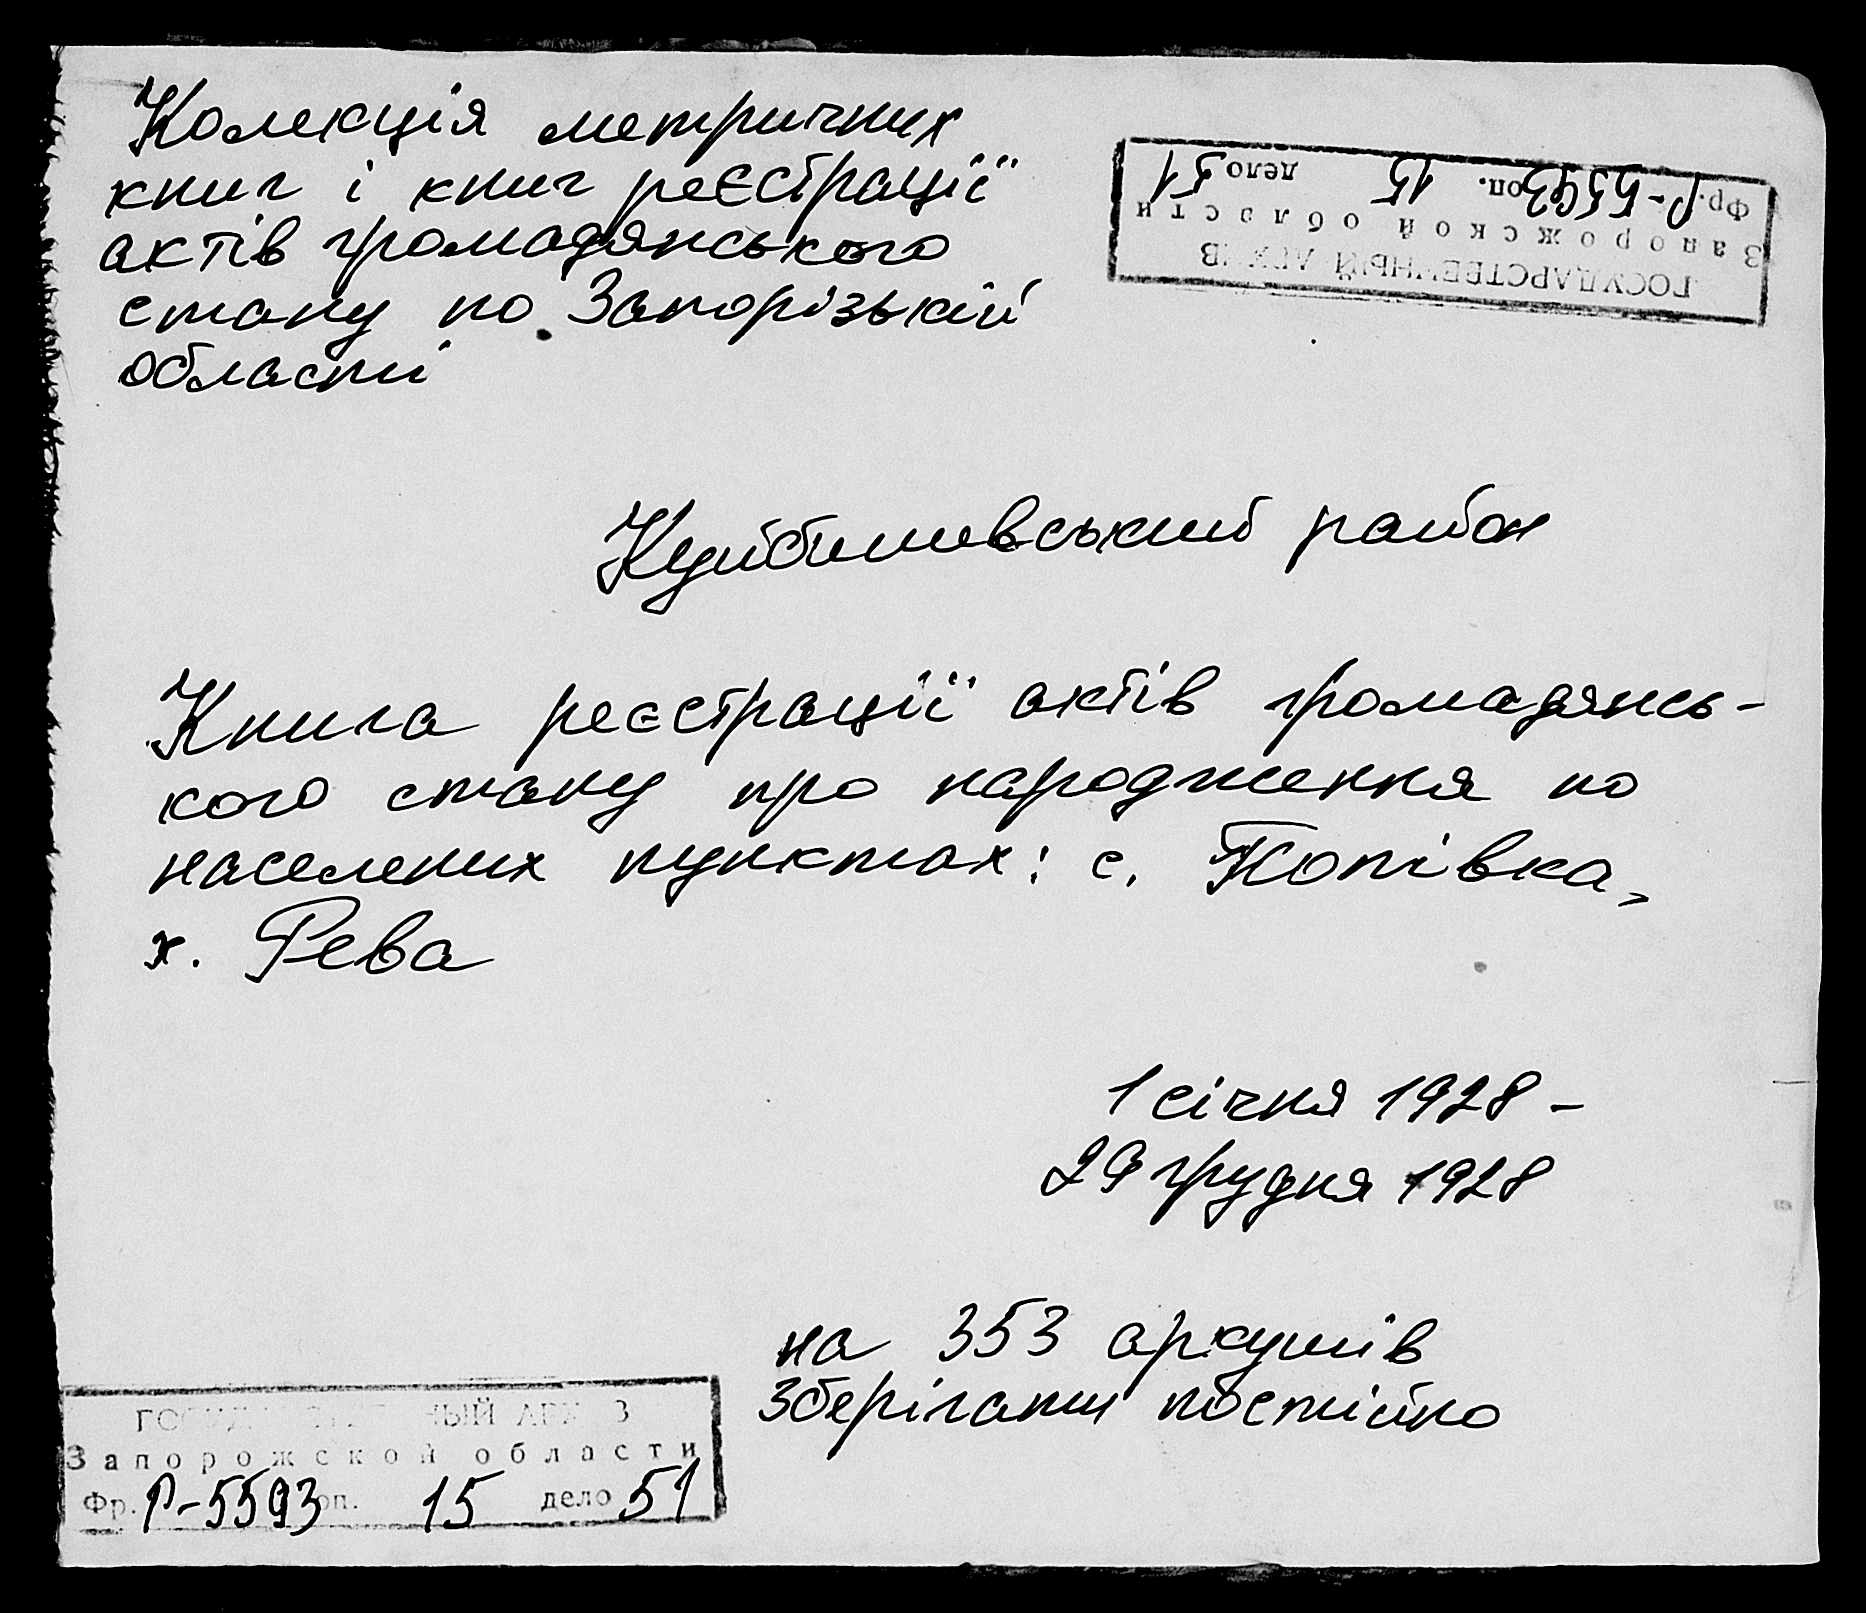 Колекція метричних
книг і книг реєстрації
актів громадянського
стану по Запорізькій
області
ГОСУДАРСТВЕННЫЙ АРХИВ
Запорожской области
Фр. Р-5593 оп. 15 дело 51
Куйбишевський район
Книга реєстрації актів громадянсь-
кого стану про народження по
населених пунктах: с. Попівка,
х. Рева
1 січня 1928 -
29 грудня 1928
на 353 аркушів
Зберігати постійно
ГОСУДАРСТВЕННЫЙ АРХИВ
Запорожской области
Фр. Р-5593 оп. 15 дело 51